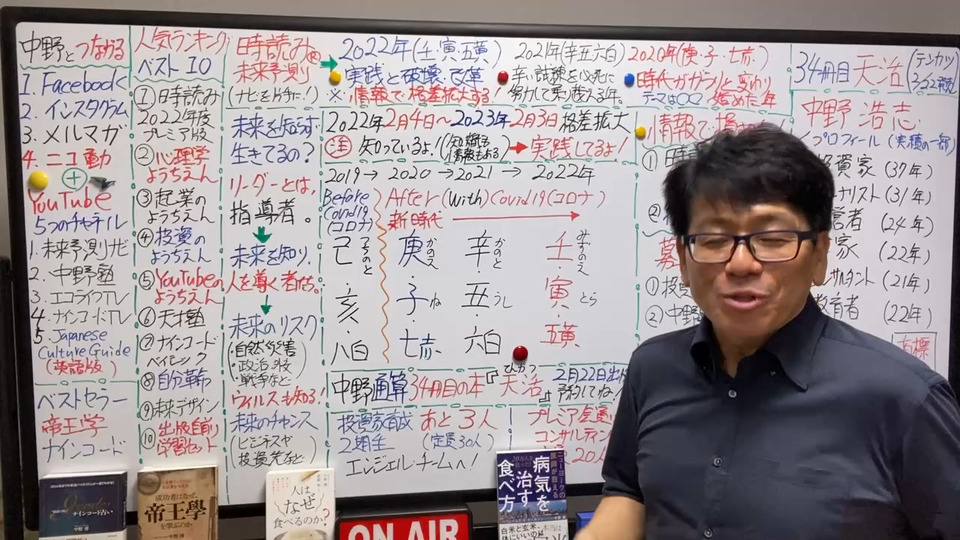 中野とつながる
1. Facebook
2. インスタグラム
3. メルマガ
4. ニコ動
+
YouTube
5つのチャネル
1. 未来予測ナビ
2. 中野塾
3. エコライフTV
4. ナインコードTV
5. Japanese
Culture Guide
(英語版)
ベストセラー
帝王学
ナインコード
人気ランキング
ベスト10
① 時読み
2022年度
プレミア版
② 心理学
ようちえん
③ 起業の
ようちえん
④ 投資の
ようちえん
⑤ YouTubeの
ようちえん
⑥ 天才塾
⑦ ナインコード
ベイシック
⑧ 自分革命
⑨ 未来デザイン
⑩ 出版目前り
学習セット
時読み®
未来予測り
(ナビを片手に!)
未来を知らず
生きてるの?
リーダーとは、
指導者。
未来を知り、
人を導く者だ。
未来のリスク
・自然災害
・政治・役
・戦争など
ウイルスも知る!
未来のチャンス
(ビジネスや
投資先など)
2022年(壬・寅・五黄)
実践と破壊・改革
※情報で格差拡大する!
2021年(辛・丑・六白)
辛い試練を必死に
努力して乗り越える年。
2020年(庚・子・七赤)
時代がガラリと変わり
始めた年
2022年2月4日〜2023年2月3日 格差拡大
注 知っているよ!(知識も情報もある) → 実践してるよ!
2019 → 2020 → 2021 → 2022年
Before
Covid19
(コロナ)
After (With) Covid19 (コロナ)
新時代
己 つちのと
庚 かのえ
辛 かのと
壬 みずのえ
亥
子 ね
丑 うし
寅 とら
八白
七赤
六白
五黄
中野通算34冊目の本『天活
てんかつ
2月22日出版
投資家育成 あと3人
2期生 (定員30人)
エンジェルチームへ!
プレミア会員
コンサルティン
20人
34冊目 天活 (テンカツ)
中野 浩志
プロフィール(実績の一部)
投資家 (37年)
ナリスト (31年)
(24年)
家 (22年)
サルタント (21年)
教育者 (22年)
情報で
① 時
②
① 投
② 中野
ナインコード占い
成功者はなぜ、
帝王學
を学ぶのか
人は
なぜ
食べるのか?
ニューヨークの
医師が教える
病気を
治す
食べ方
白米と玄米、
ON AIR